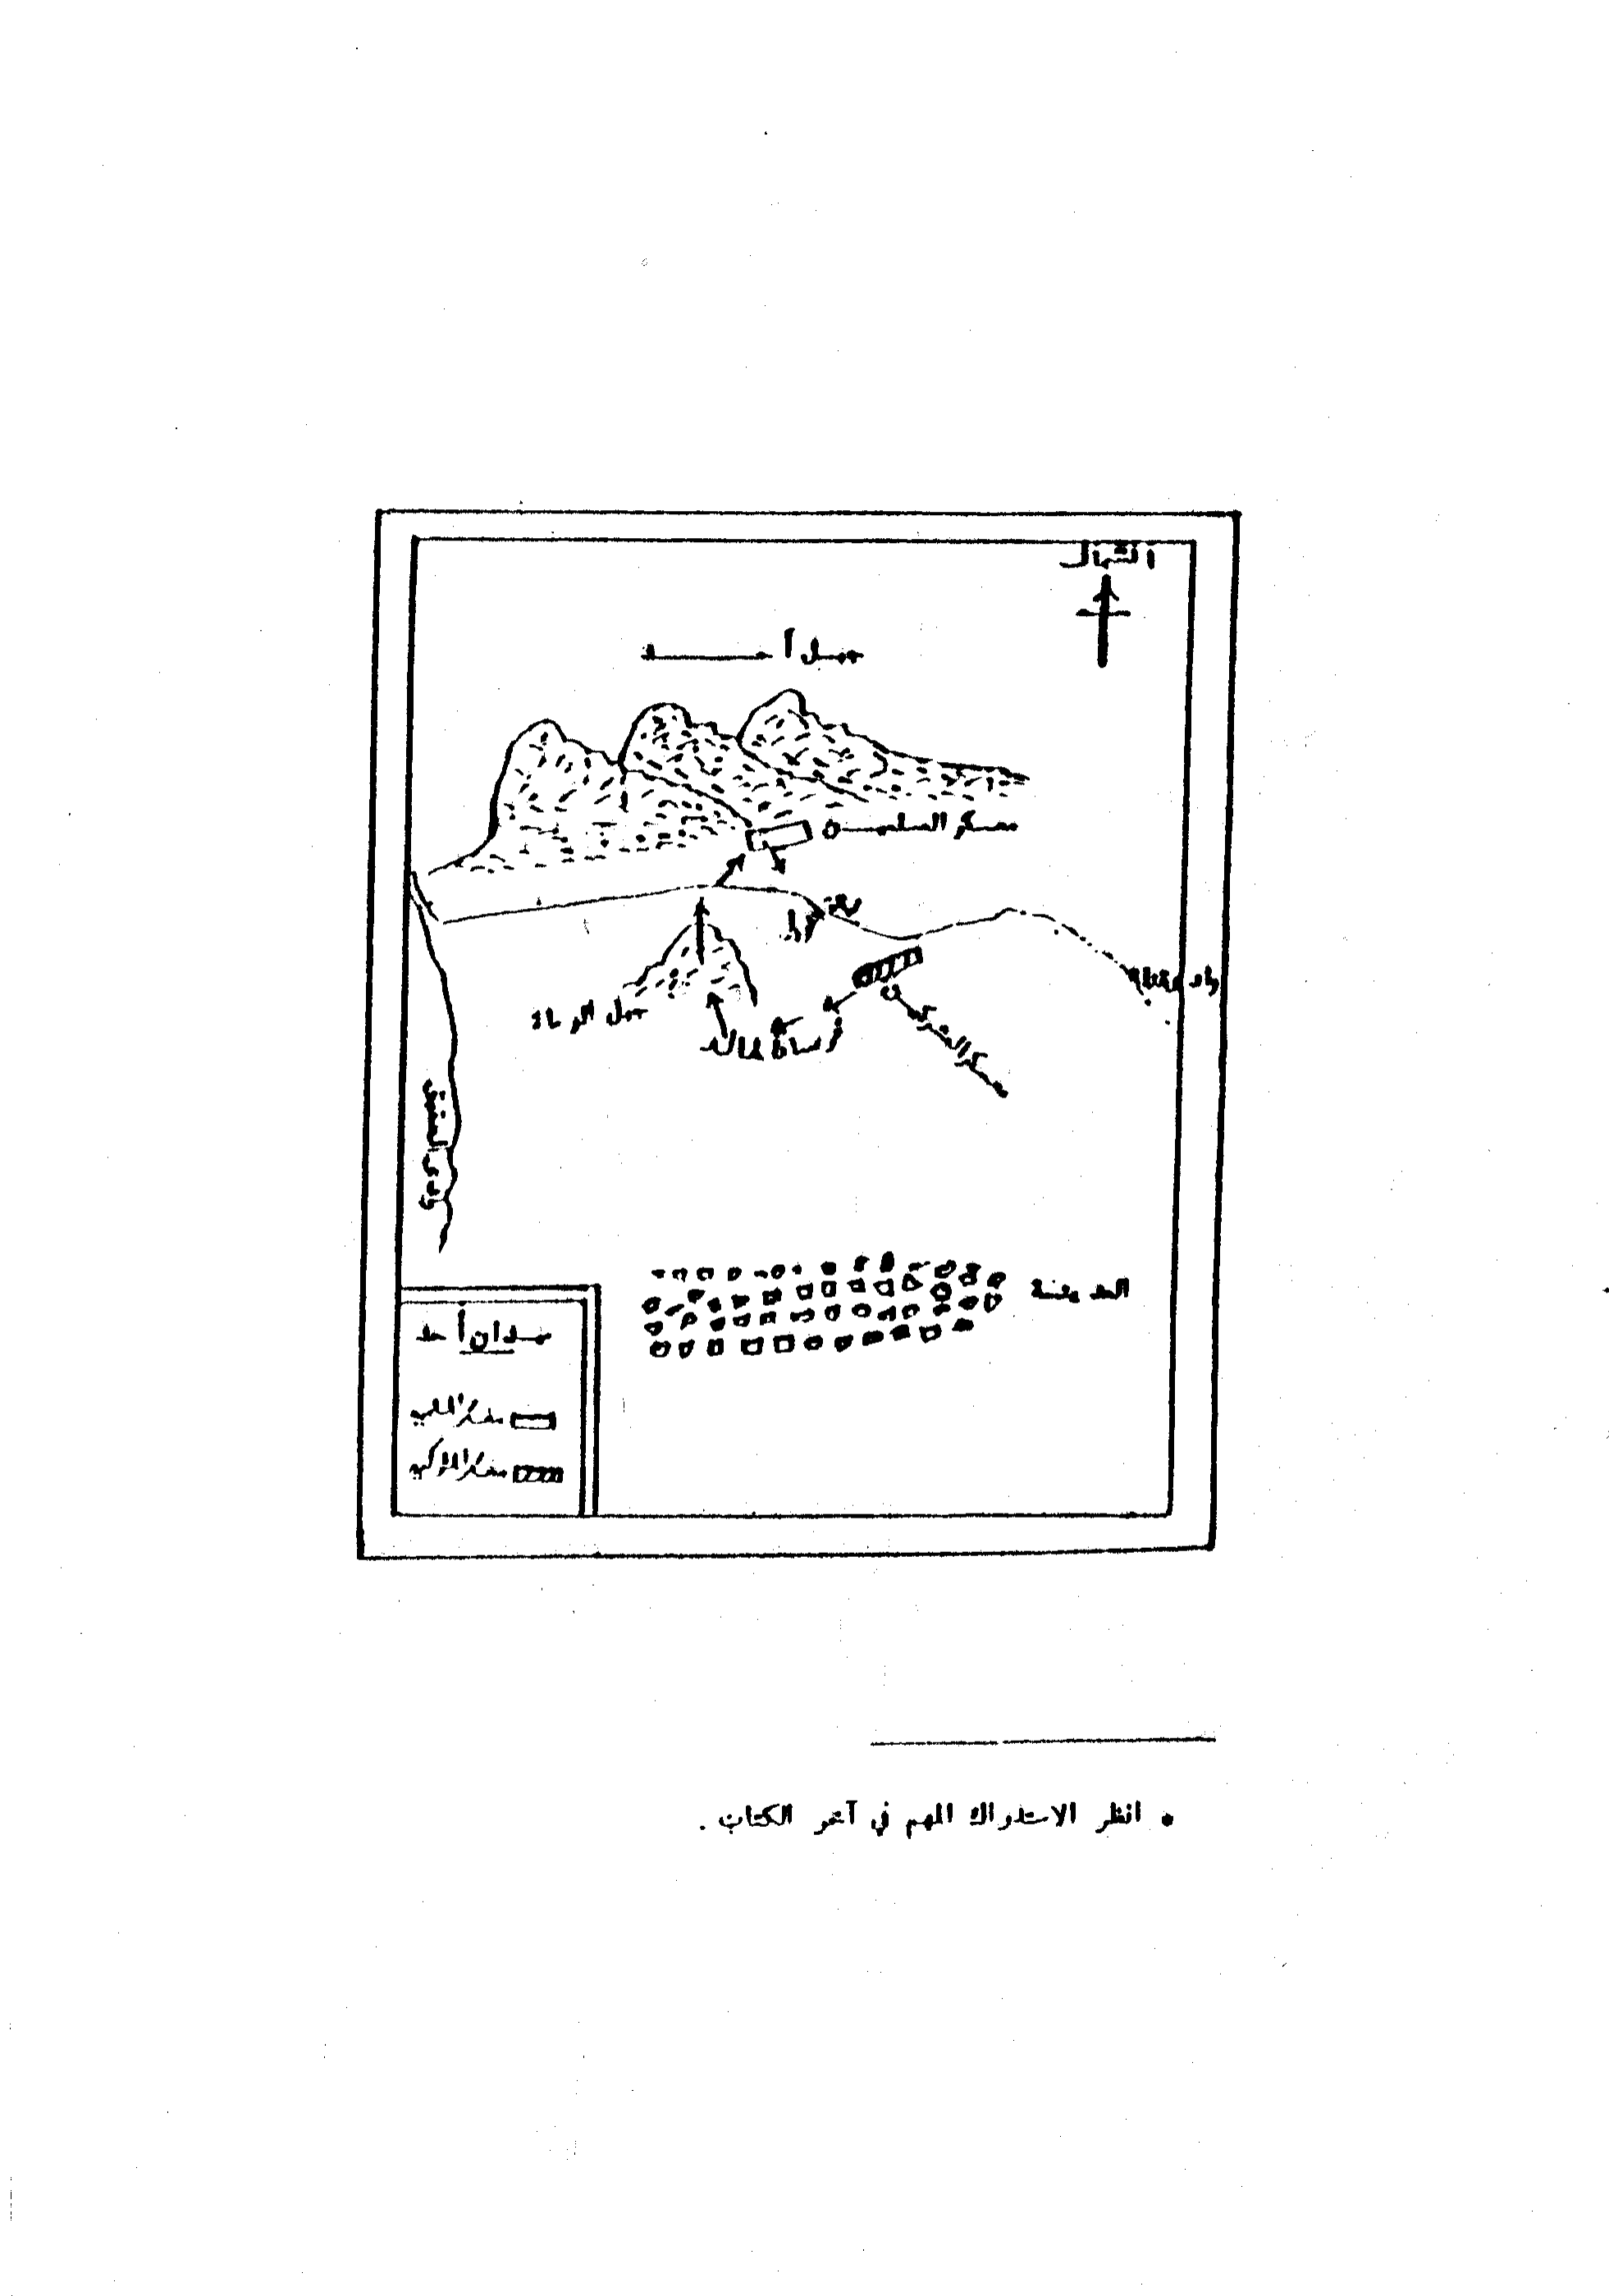 الشمال
جبل أحد
معسكر المسلمين
جبل الرماة
فرسان خالد
معسكر المشركين
وادي العقيق
المدينة
ميدان أحد
معسكر المسلمين
معسكر المشركين
* انظر الاستدراك المهم في آخر الكتاب .